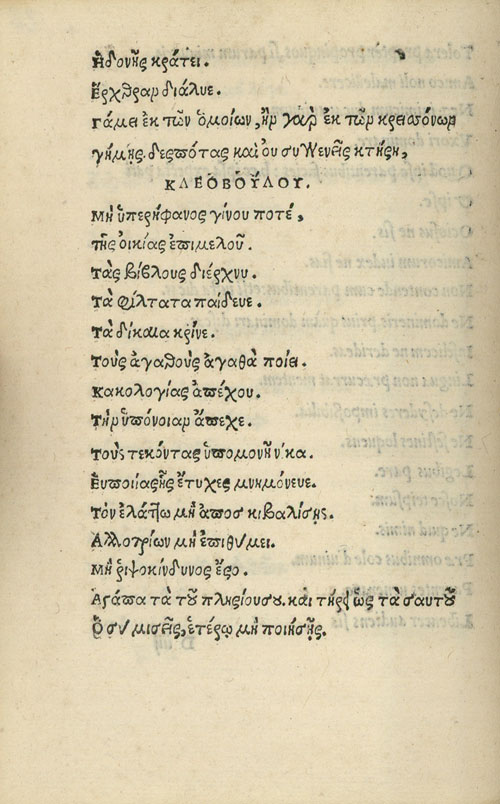 Ἡδονῆς κράτει.
Ἔχθραν διάλυε.
Γάμει ἐκ τῶν ὁμοίων, ἢν γὰρ ἐκ τῶν κρειασόνων
γήμῃς, δεσπότας καὶ οὐ συγγενεῖς κτήσῃ,
ΚΛΕΟΒΟΎΛΟΥ.
Μὴ ὑπερήφανος γίνου ποτέ,
τῆς οἰκίας ἐπιμελοῦ.
Τὰς βίβλους διέρχου.
Τὰ φίλτατα παίδευε.
Τὰ δίκαια κρῖνε.
Τοὺς ἀγαθοὺς ἀγαθὰ ποίει.
Κακολογίας ἀπέχου.
Τὴν ὑπόνοιαν ἄπεχε.
Τοὺς τεκόντας ὑπομονῇ νίκα.
Εὐποιίας ἧς ἔτυχες μνημόνευε.
Τὸν ἐλάττω μὴ ἀποσκιβαλίσῃς.
Ἀλλοτρίων μὴ ἐπιθύμει.
Μὴ ῥιψοκίνδυνος ἔσο.
Ἀγάπα τὰ τοῦ πλησίου σου. καὶ τήρει ὡς τὰ σαυτοῦ
Ὃ σὺ μισεῖς, ἑτέρῳ μὴ ποιήσῃς.